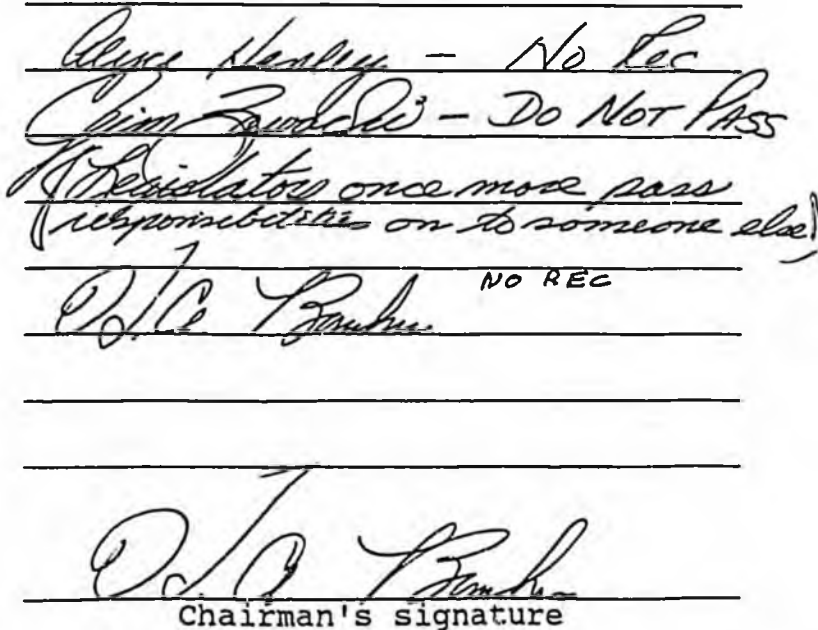 Alyce Hanley - No Rec
- DO NOT PASS
(Legislators once more pass
responsibilities on to someone else)
NO REC
Chairman's signature